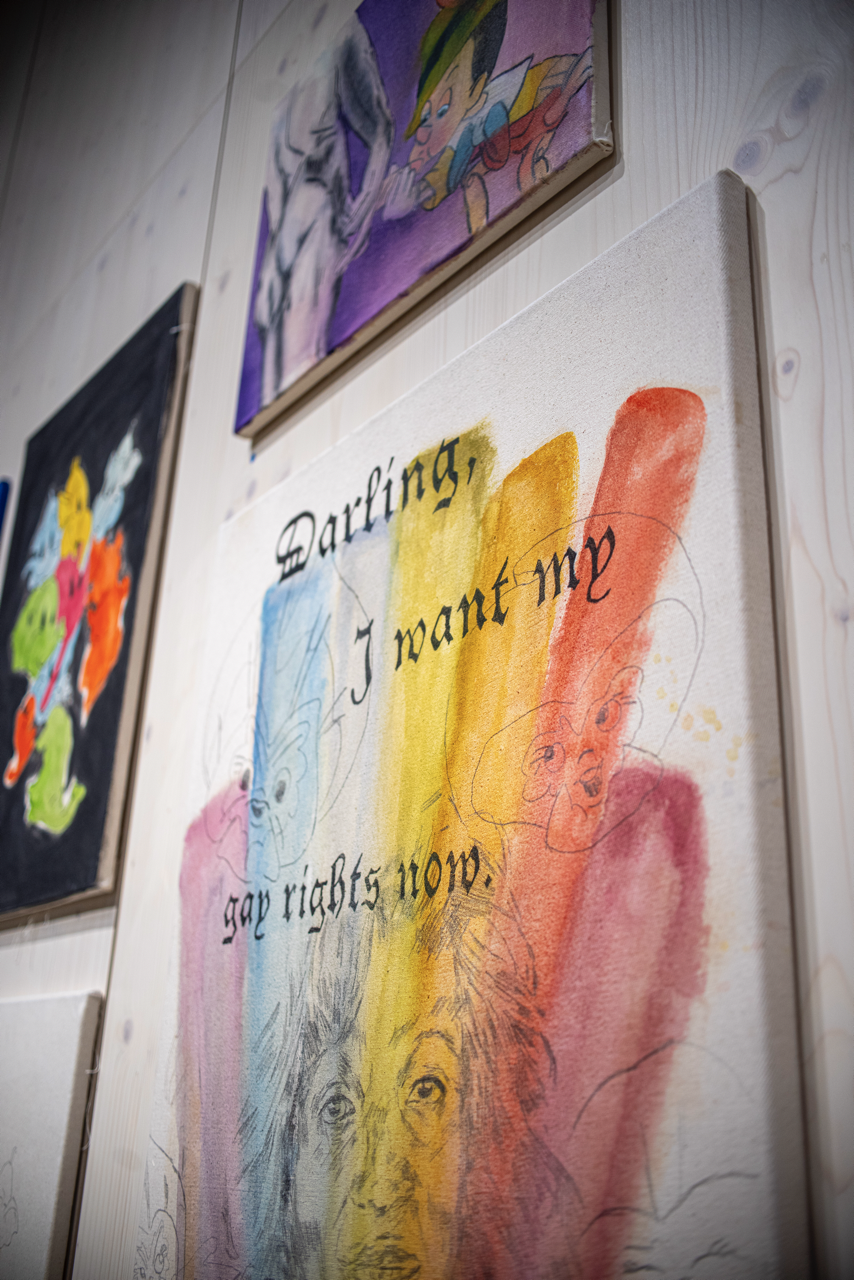 Darling,
I want my
gay rights now.